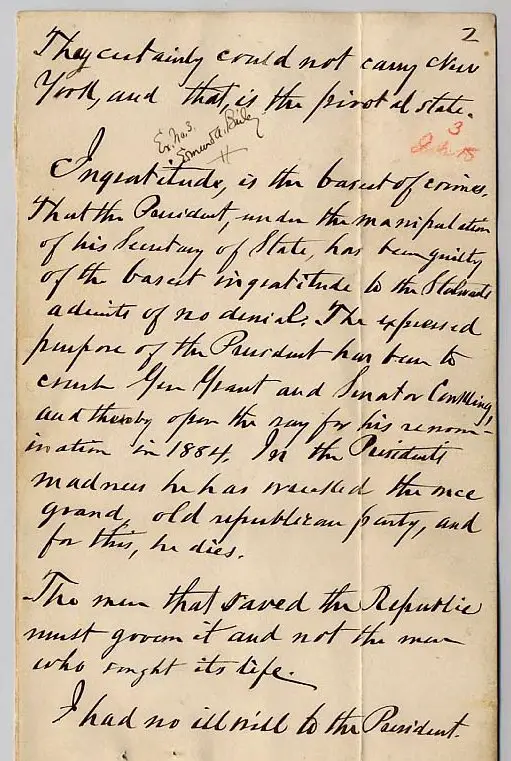 2
They certainly could not carry New
York, and that, is the pivotal state.
3
Ex. No. 3.
Edmund A. Bailey
Ingratitude, is the basest of crimes.
That the President, under the manipulation
of his Secretary of State, has been guilty
of the basest ingratitude to the Stalwarts
admits of no denial. The expressed
purpose of the President has been to
crush Gen Grant and Senator Conkling,
and thereby open the way for his renom-
ination in 1884. In the President's
madness he has wrecked the once
grand, old republican party, and
for this, he dies.
The men that saved the Republic
must govern it and not the men
who sought its life.
I had no ill will to the President.